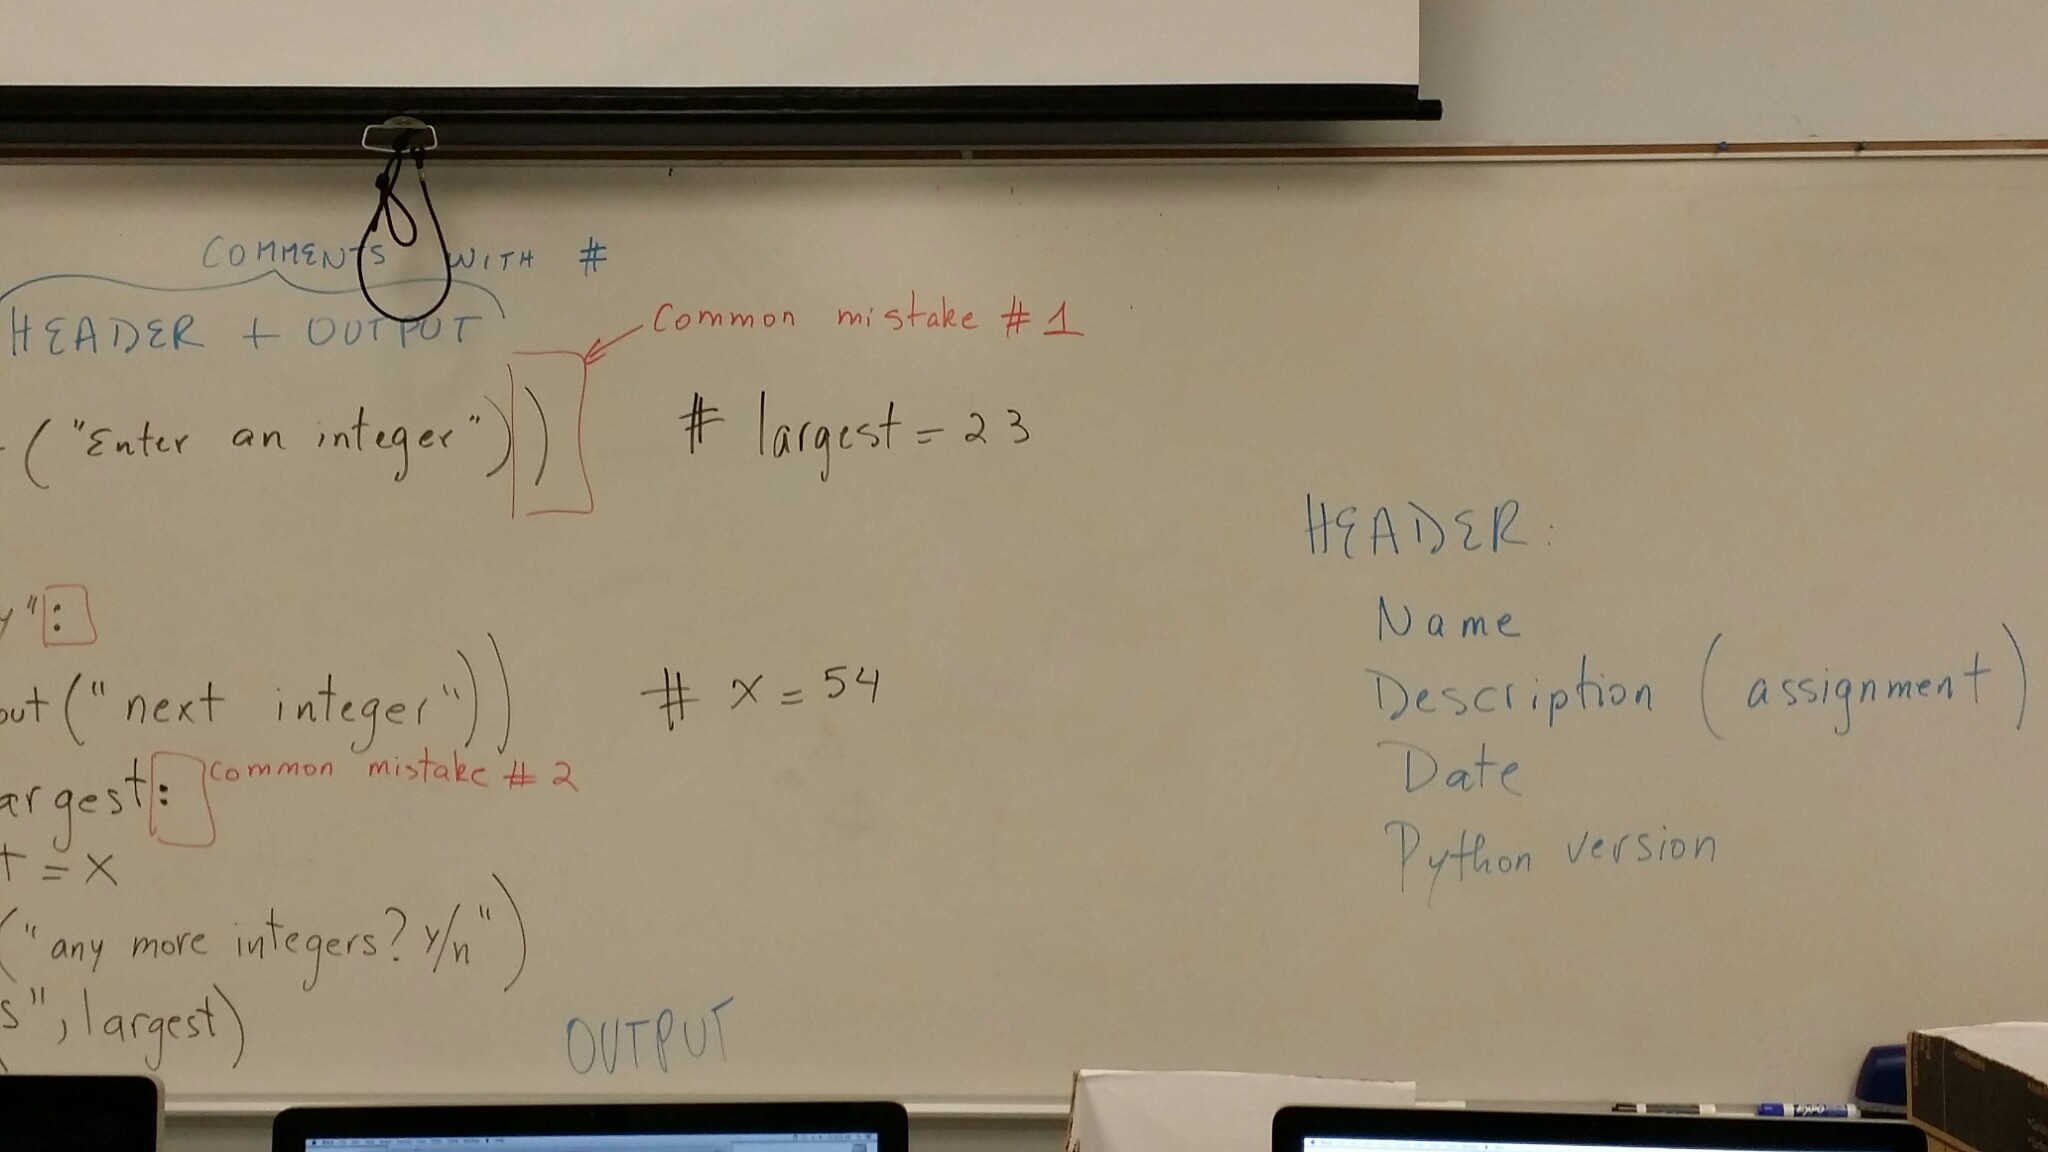 COMMENTS WITH #
HEADER + OUTPUT
Common mistake # 1
("Enter an integer")) # largest = 23
HEADER:
Name
y":
Description (assignment)
out ("next integer")) # x = 54
Date
common mistake # 2
argest:
Python version
t = x
("any more integers? y/n")
s", largest)
OUTPUT